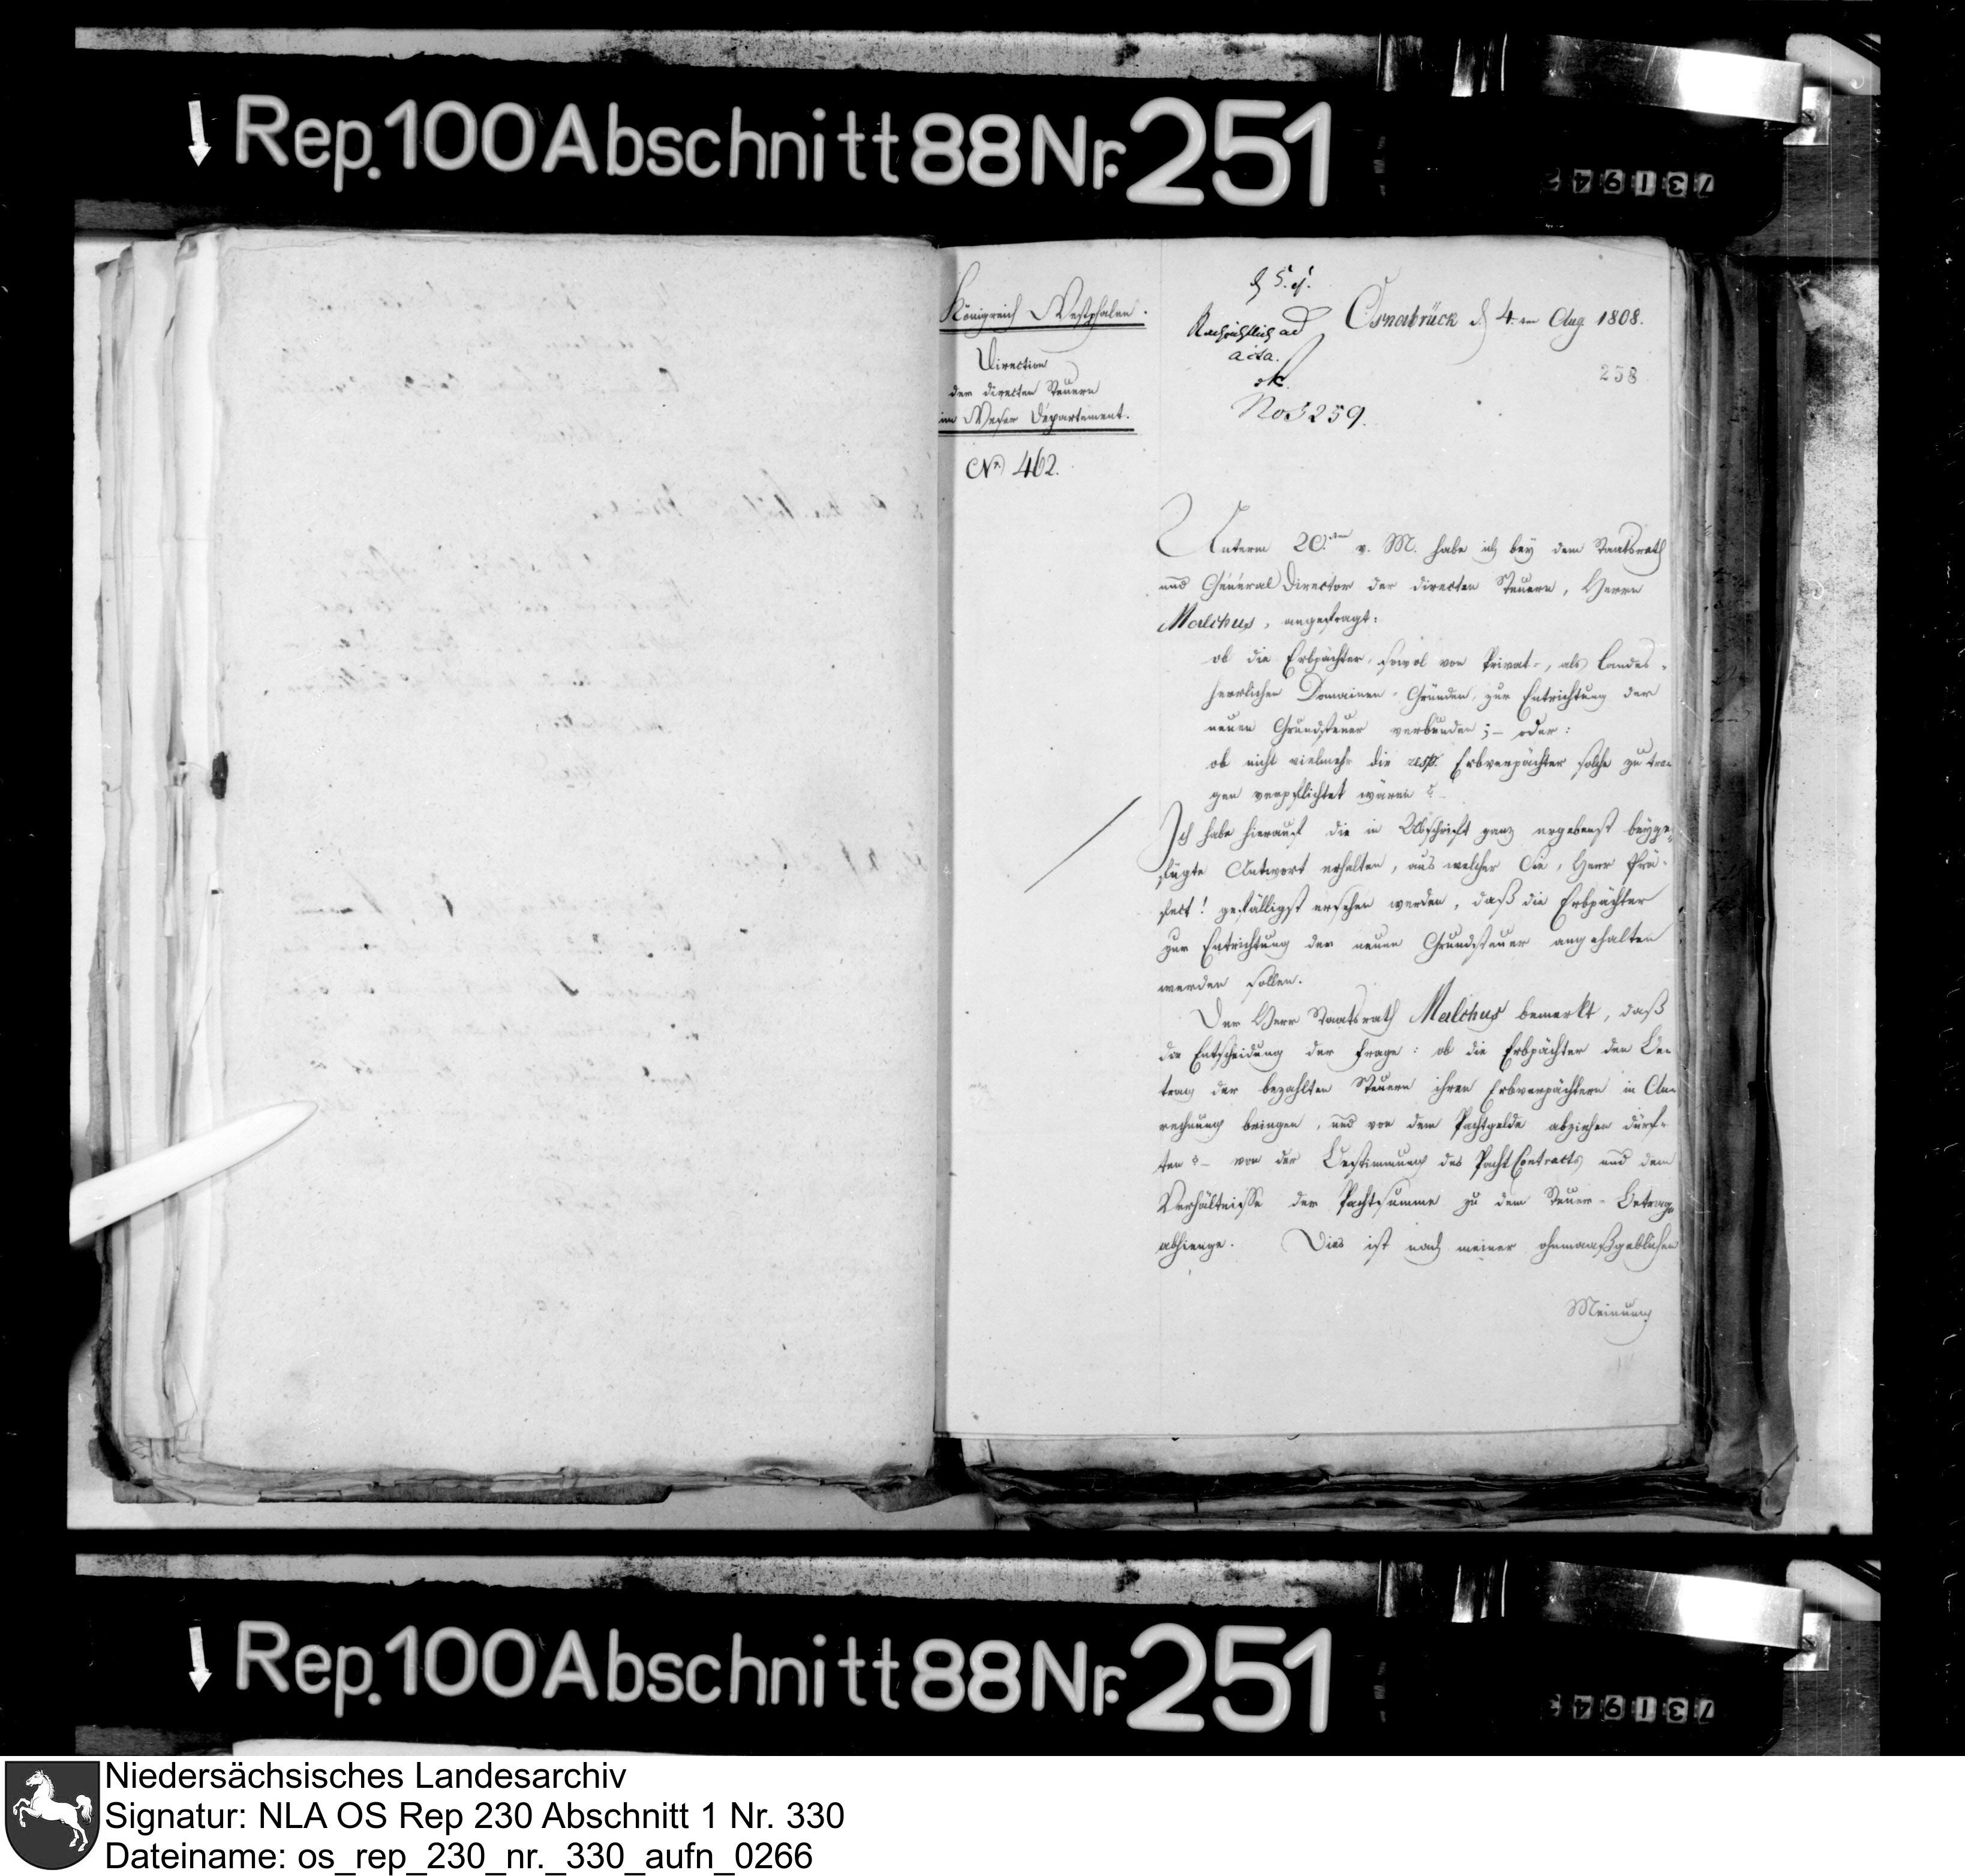 Rep. 100 Abschnitt 88 Nr. 251
Königreich Westphalen.
Direction
der directen Steuern
im Weser Departement.
No 462.
d 5. ej.
Nachrichtlich ad
acta.
No 3259.
Osnabrück d. 4ten Aug. 1808.
258
Unterm 20ten v. M. habe ich bey dem Staatsrath
und General Director der directen Steuern, Herrn
Malchus, angefragt:
ob die Erbpächter, sowol von Privat-, als Landes-
herrlichen Domainen-Gründen, zur Entrichtung der
neuen Grundsteuer verbunden; – oder:
ob nicht vielmehr die resp. Erbverpächter solche zu tra-
gen verpflichtet wären?
Ich habe hierauf die in Abschrift ganz ergebenst beyge-
fügte Antwort erhalten, aus welcher Sie, Herr Prä-
fect! gefälligst ersehen werden, daß die Erbpächter
zur Entrichtung der neuen Grundsteuer angehalten
werden sollen.
Der Herr Staatsrath Malchus bemerkt, daß
die Entscheidung der Frage: ob die Erbpächter den Be-
trag der bezahlten Steuern ihren Erbverpächtern in An-
rechnung bringen, und von dem Pachtgelde abziehen dürf-
ten? – von der Bestimmung des Pacht Contracts und dem
Verhältnisse der Pachtsumme zu dem Steuer-Betrage
abhienge. Dies ist nach meiner ohnmaaßgeblichen
Meinung
Rep. 100 Abschnitt 88 Nr. 251
Niedersächsisches Landesarchiv
Signatur: NLA OS Rep 230 Abschnitt 1 Nr. 330
Dateiname: os_rep_230_nr._330_aufn_0266